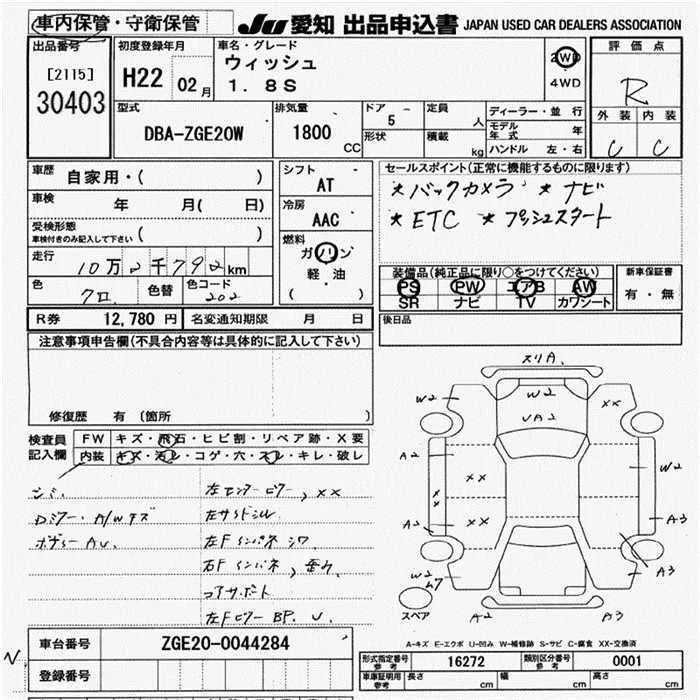 車内保管・守衛保管 JU 愛知 出品申込書 JAPAN USED CAR DEALERS ASSOCIATION
出品番号
[2115]
30403
初度登録年月
H22 02月
車名・グレード
ウィッシュ
1.8S
2WD
4WD
評価点
R
外装 内装
C C
型式
DBA-ZGE20W
排気量
1800 CC
ドア 5
形状
定員 人
積載 kg
ディーラー・並行
モデル年式 年
ハンドル 左・右
車歴 自家用・( )
車検 年 月( 日)
受検形態 ( )
車検付きのみ記入して下さい
走行 10万2千792km
色 クロ 色替 色コード 202
シフト
AT
冷房
AAC
燃料
ガソリン
軽・油
( )
セールスポイント(正常に機能するものに限ります)
★バックカメラ ★ナビ
★ETC ★プッシュスタート
装備品(純正品に限り○をつけてください)
PS PW エアB AW
SR ナビ TV カワシート
新車保証書
有・無
R券 12,780円 名変通知期限 月 日
後日品
注意事項申告欄(不具合内容等は具体的に記入して下さい)
修復歴 有(箇所 )
検査員記入欄
FW キズ・飛石・ヒビ割・リペア跡・X要
内装 キズ・汚レ・コゲ・穴・スレ・キレ・破レ
シミ、 左センターピラー, XX
Dミラー・A/Wキズ 左サイドシル
ボディーAU、 左Fインパネ シワ
右Fインパネ, 歪み
コアサポート
左Fピラー BP. U.
スリA、
W2 W2 XX
UA2
A2 XX W2
XX
A2 XX A3
W2 A3
スペア A2 A3
A-キズ E-エクボ U-凹み W-補修跡 S-サビ C-腐食 XX-交換済
N
車台番号 ZGE20-0044284
登録番号
形式指定番号 参考 16272 類別区分番号 参考 0001
車庫証明用 参考 長さ cm 幅 cm 高さ cm